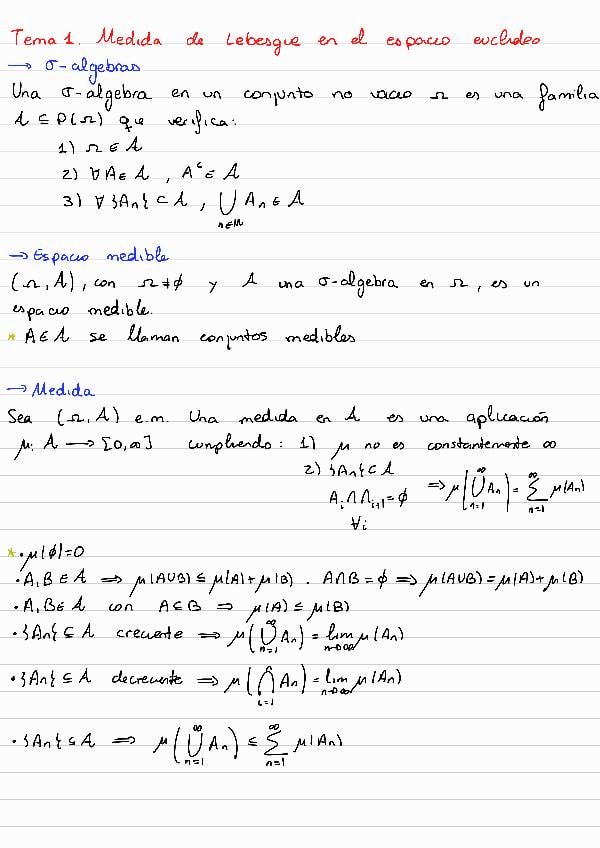 Tema 1. Medida de Lebesgue en el espacio euclídeo
→ σ-algebras
Una σ-algebra en un conjunto no vacío Ω es una familia
A ⊆ P(Ω) que verifica:
1) Ω ∈ A
2) ∀A ∈ A , Aᶜ ∈ A
3) ∀ {An} ⊂ A , ⋃ n∈ℕ An ∈ A
→ Espacio medible
(Ω, A), con Ω ≠ ∅ y A una σ-algebra en Ω, es un
espacio medible.
* A ∈ A se llaman conjuntos medibles
→ Medida
Sea (Ω, A) e.m. Una medida en A es una aplicación
μ: A → [0,∞] cumpliendo: 1) μ no es constantemente ∞
2) {An} ⊂ A
Ai ∩ Ai+1 = ∅ ⇒ μ(⋃ n=1 ∞ An) = ∑ n=1 ∞ μ(An)
∀i
* · μ(∅)=0
· A,B ∈ A ⇒ μ(A∪B) ≤ μ(A)+μ(B) . A∩B = ∅ ⇒ μ(A∪B) = μ(A)+μ(B)
· A,B ∈ A con A⊆B ⇒ μ(A) ≤ μ(B)
· {An} ⊆ A creciente ⇒ μ(⋃ n=1 ∞ An) = lim n→∞ μ(An)
· {An} ⊆ A decreciente ⇒ μ(⋂ i=1 An) = lim n→∞ μ(An)
· {An} ⊆ A ⇒ μ(⋃ n=1 ∞ An) ≤ ∑ n=1 ∞ μ(An)